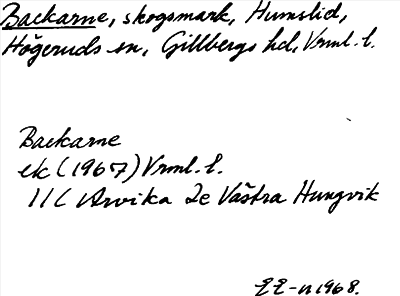 Backarne, skogsmark, Humslid,
Högeruds sn, Gillbergs hd, Vrml. l.
Backarne
ek (1967) Vrml. l.
11C Arvika 2e Västra Hungvik
1968.